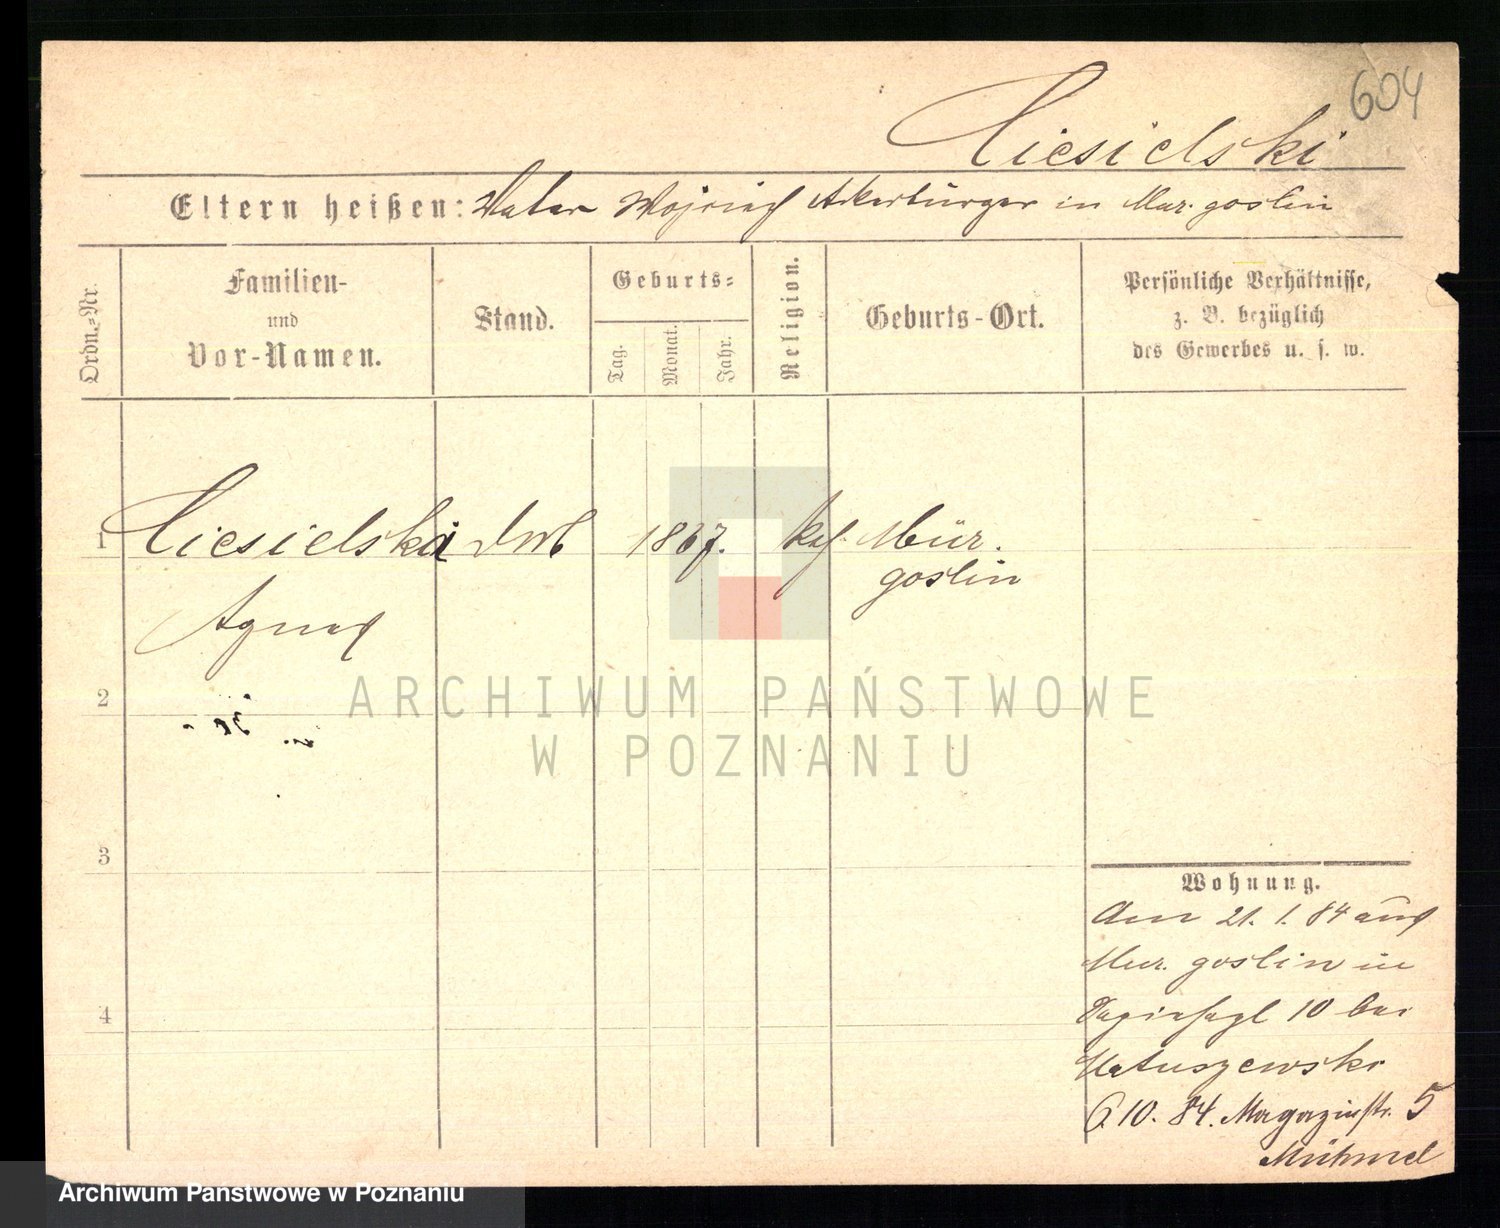 604
Ciesielski
Eltern heißen: Vater Wojciech Ackerbürger in Mur. goslin
Ordn.-Nr.
Familien-
und
Vor-Namen.
Stand.
Geburts-
Tag.
Monat.
Jahr.
Religion.
Geburts-Ort.
Persönliche Verhältnisse,
z. B. bezüglich
des Gewerbes u. s. w.
1 Ciesielska 1867. kath. Mur.
goslin
Agnes
2
3
4
Wohnung.
Am 21. 1. 84 aus
Mur. goslin in
10 bei
Matuszewski
6 10. 84. Magazinstr. 5
ARCHIWUM PAŃSTWOWE
W POZNANIU
Archiwum Państwowe w Poznaniu